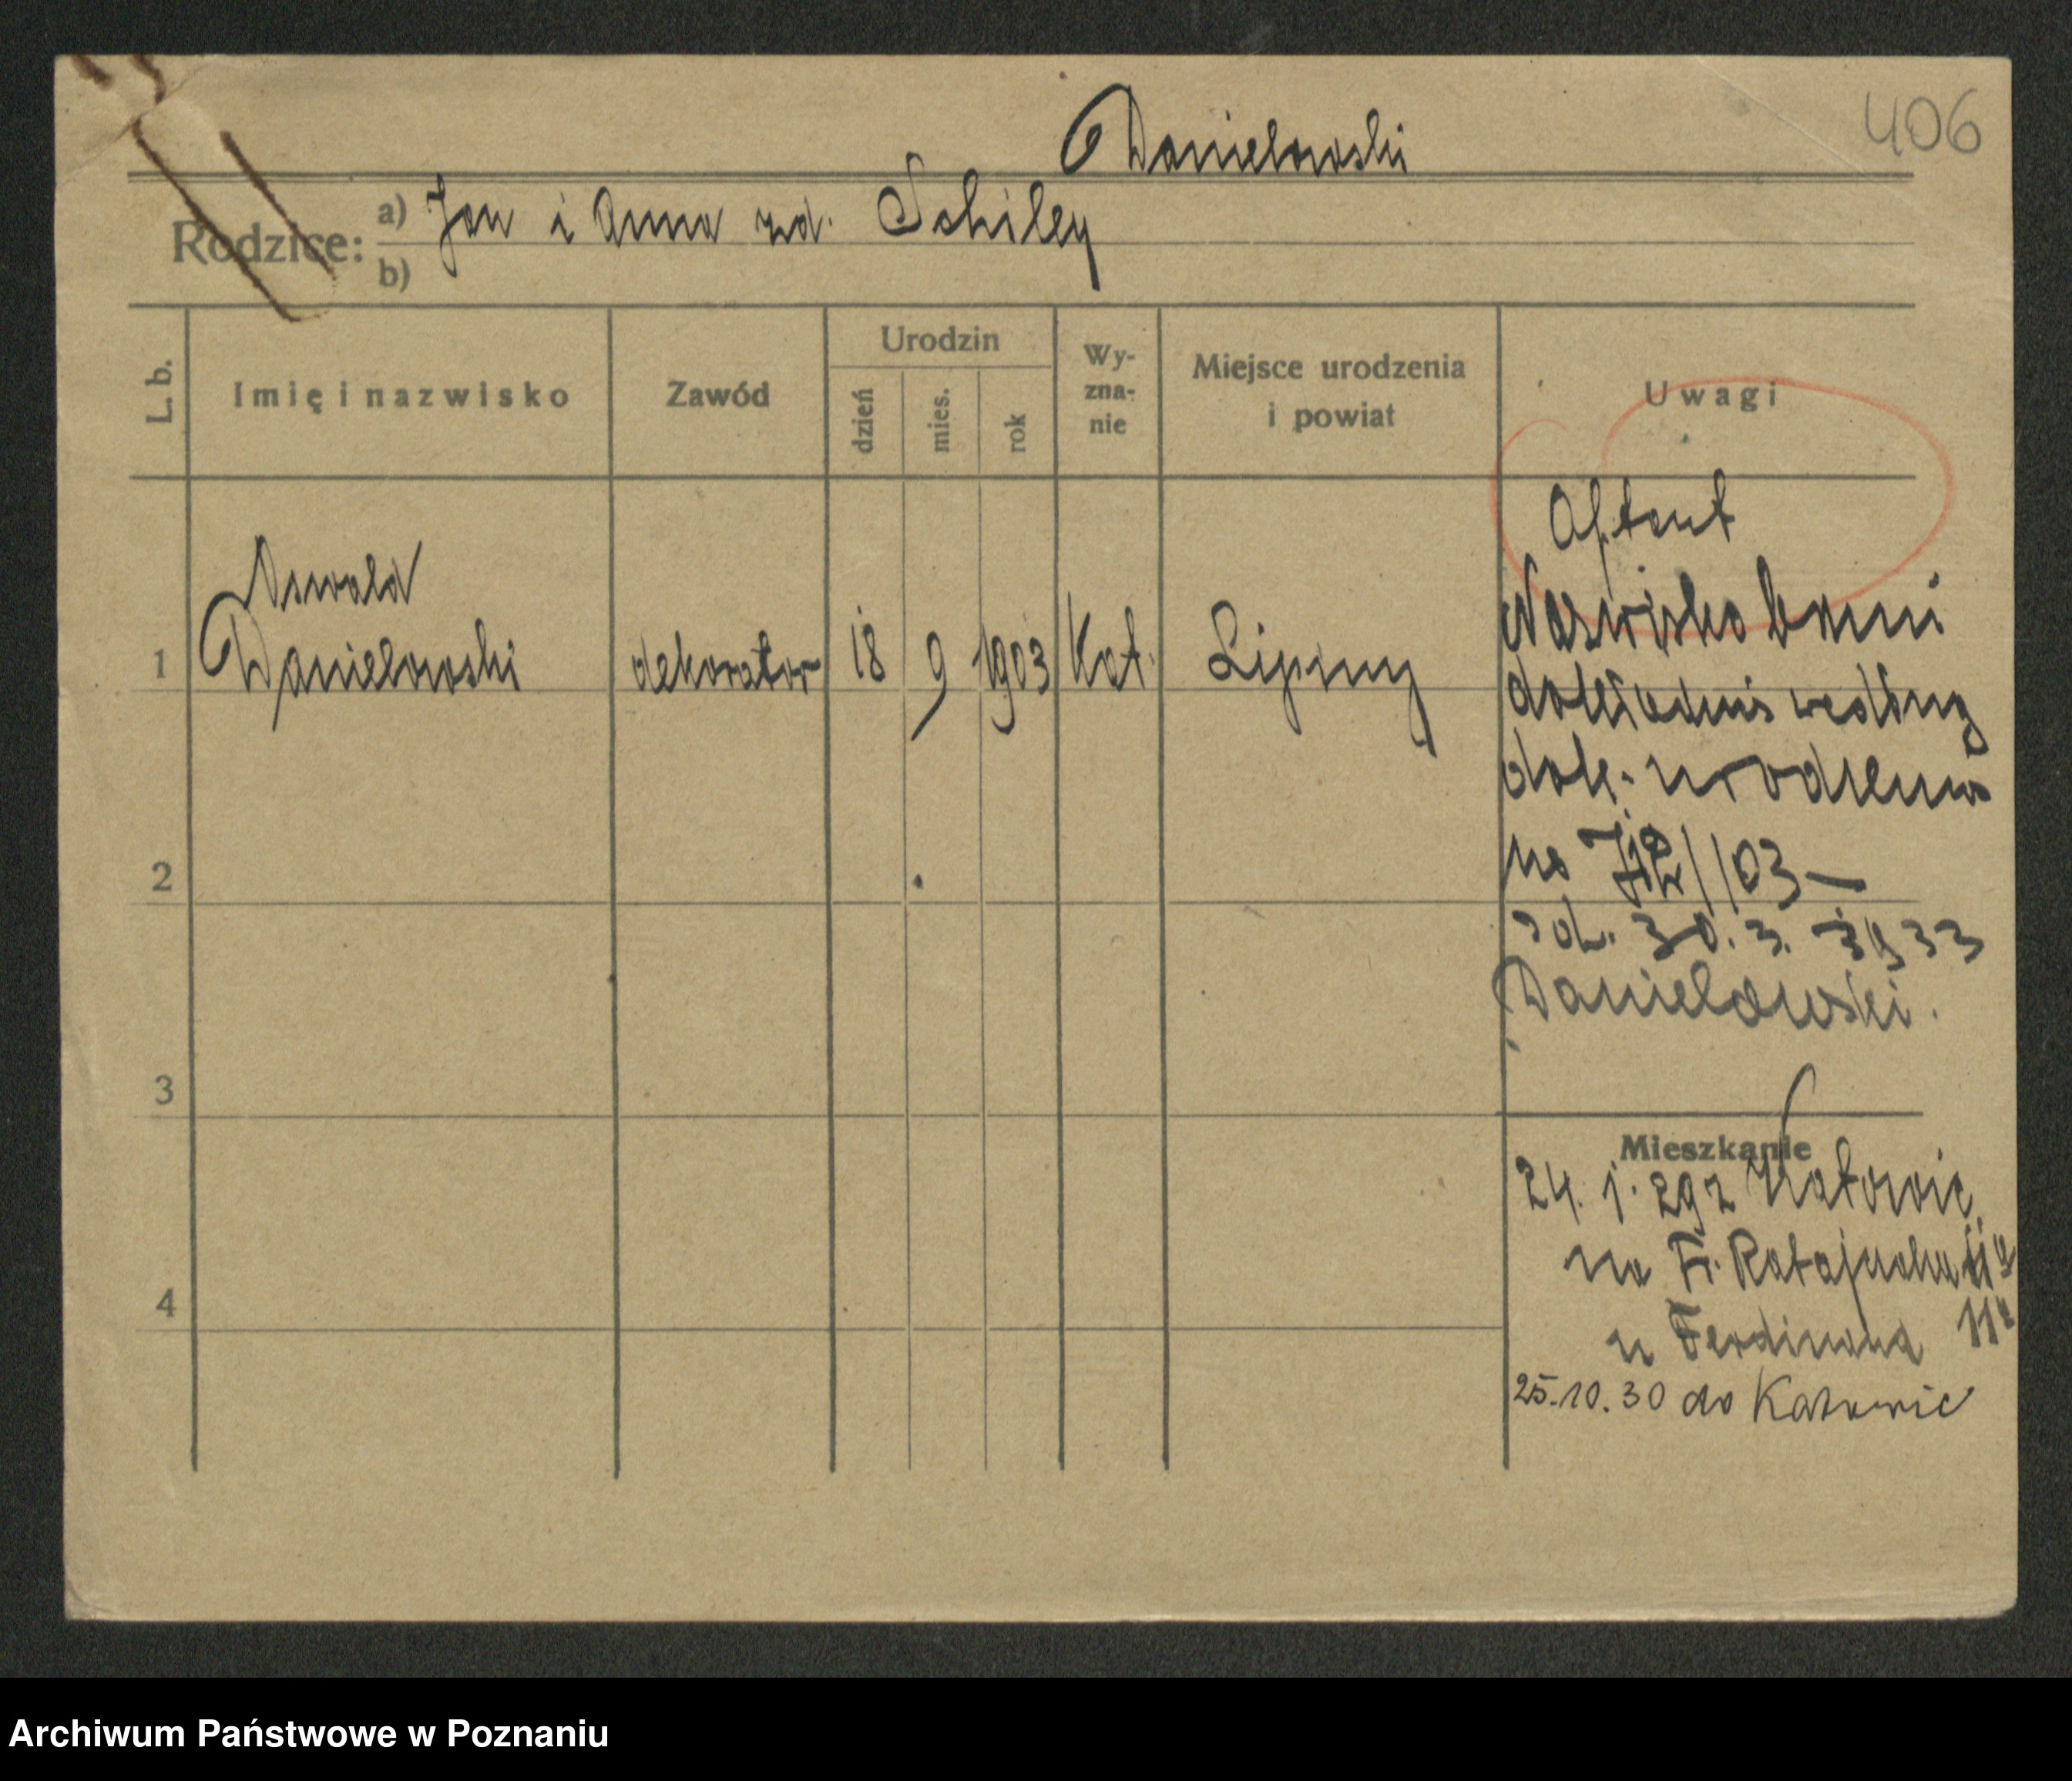 406
Danielowski
Rodzice: a) Jan i Anna zd. Schiley
b)
L. b.
Imię i nazwisko
Zawód
Urodzin
dzień
mies.
rok
Wy-
zna-
nie
Miejsce urodzenia
i powiat
Uwagi
Optant
1
Oswald
Danielowski
dekorator
18
9
1903
Kat.
Lipiny
Nazwisko brzmi
dokładnie według
dok. urodzenia
03 —
30. 3. 1933
Danielowski.
2
3
4
Mieszkanie
24. 1. 29 z Katowic
na Fr. Ratajczaka 11a
u Ferdinand
25.10.30 do Katowic
Archiwum Państwowe w Poznaniu